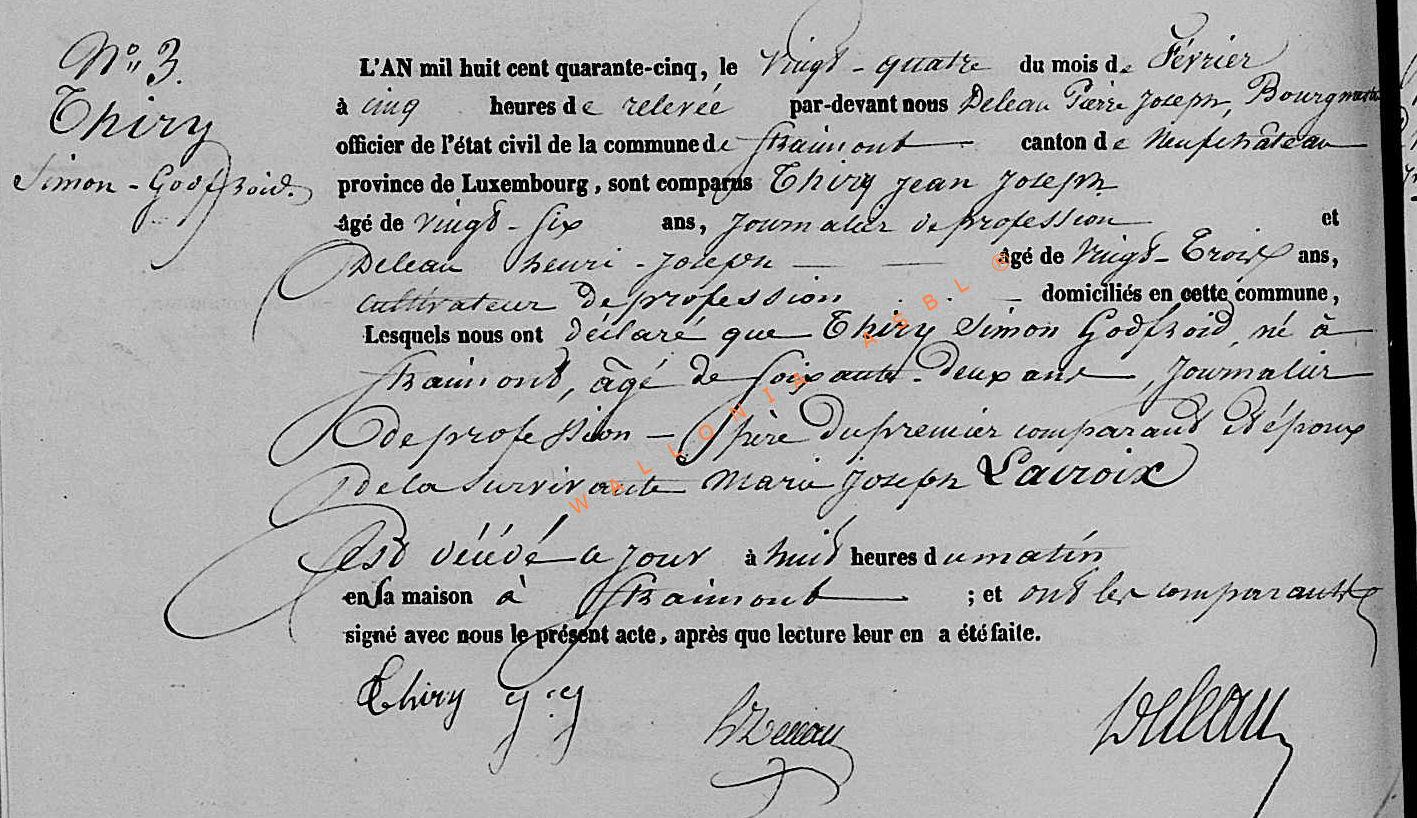 N° 3.
Thiry
Simon-Godfroid.
L'AN mil huit cent quarante-cinq, le vingt-quatre du mois de Février
à cinq heures de relevée par-devant nous Deleau Pierre Joseph, Bourgmestre
officier de l'état civil de la commune de Straimont canton de Neufchâteau
province de Luxembourg, sont comparus Thiry Jean Joseph
âgé de vingt-six ans, Journalier de profession et
Deleau henri-Joseph âgé de vingt-Trois ans,
cultivateur de profession domiciliés en cette commune,
Lesquels nous ont déclaré que Thiry Simon Godfroid, né à
Straimont, âgé de soixante-deux ans, Journalier
de profession — père du premier comparant et époux
de la survivante Marie Joseph Lacroix
est décédé ce jour à huit heures du matin
en sa maison à Straimont ; et ont les comparants
signé avec nous le présent acte, après que lecture leur en a été faite.
Thiry J:J
h Deleau
Deleau
WALLONIA ASBL ®